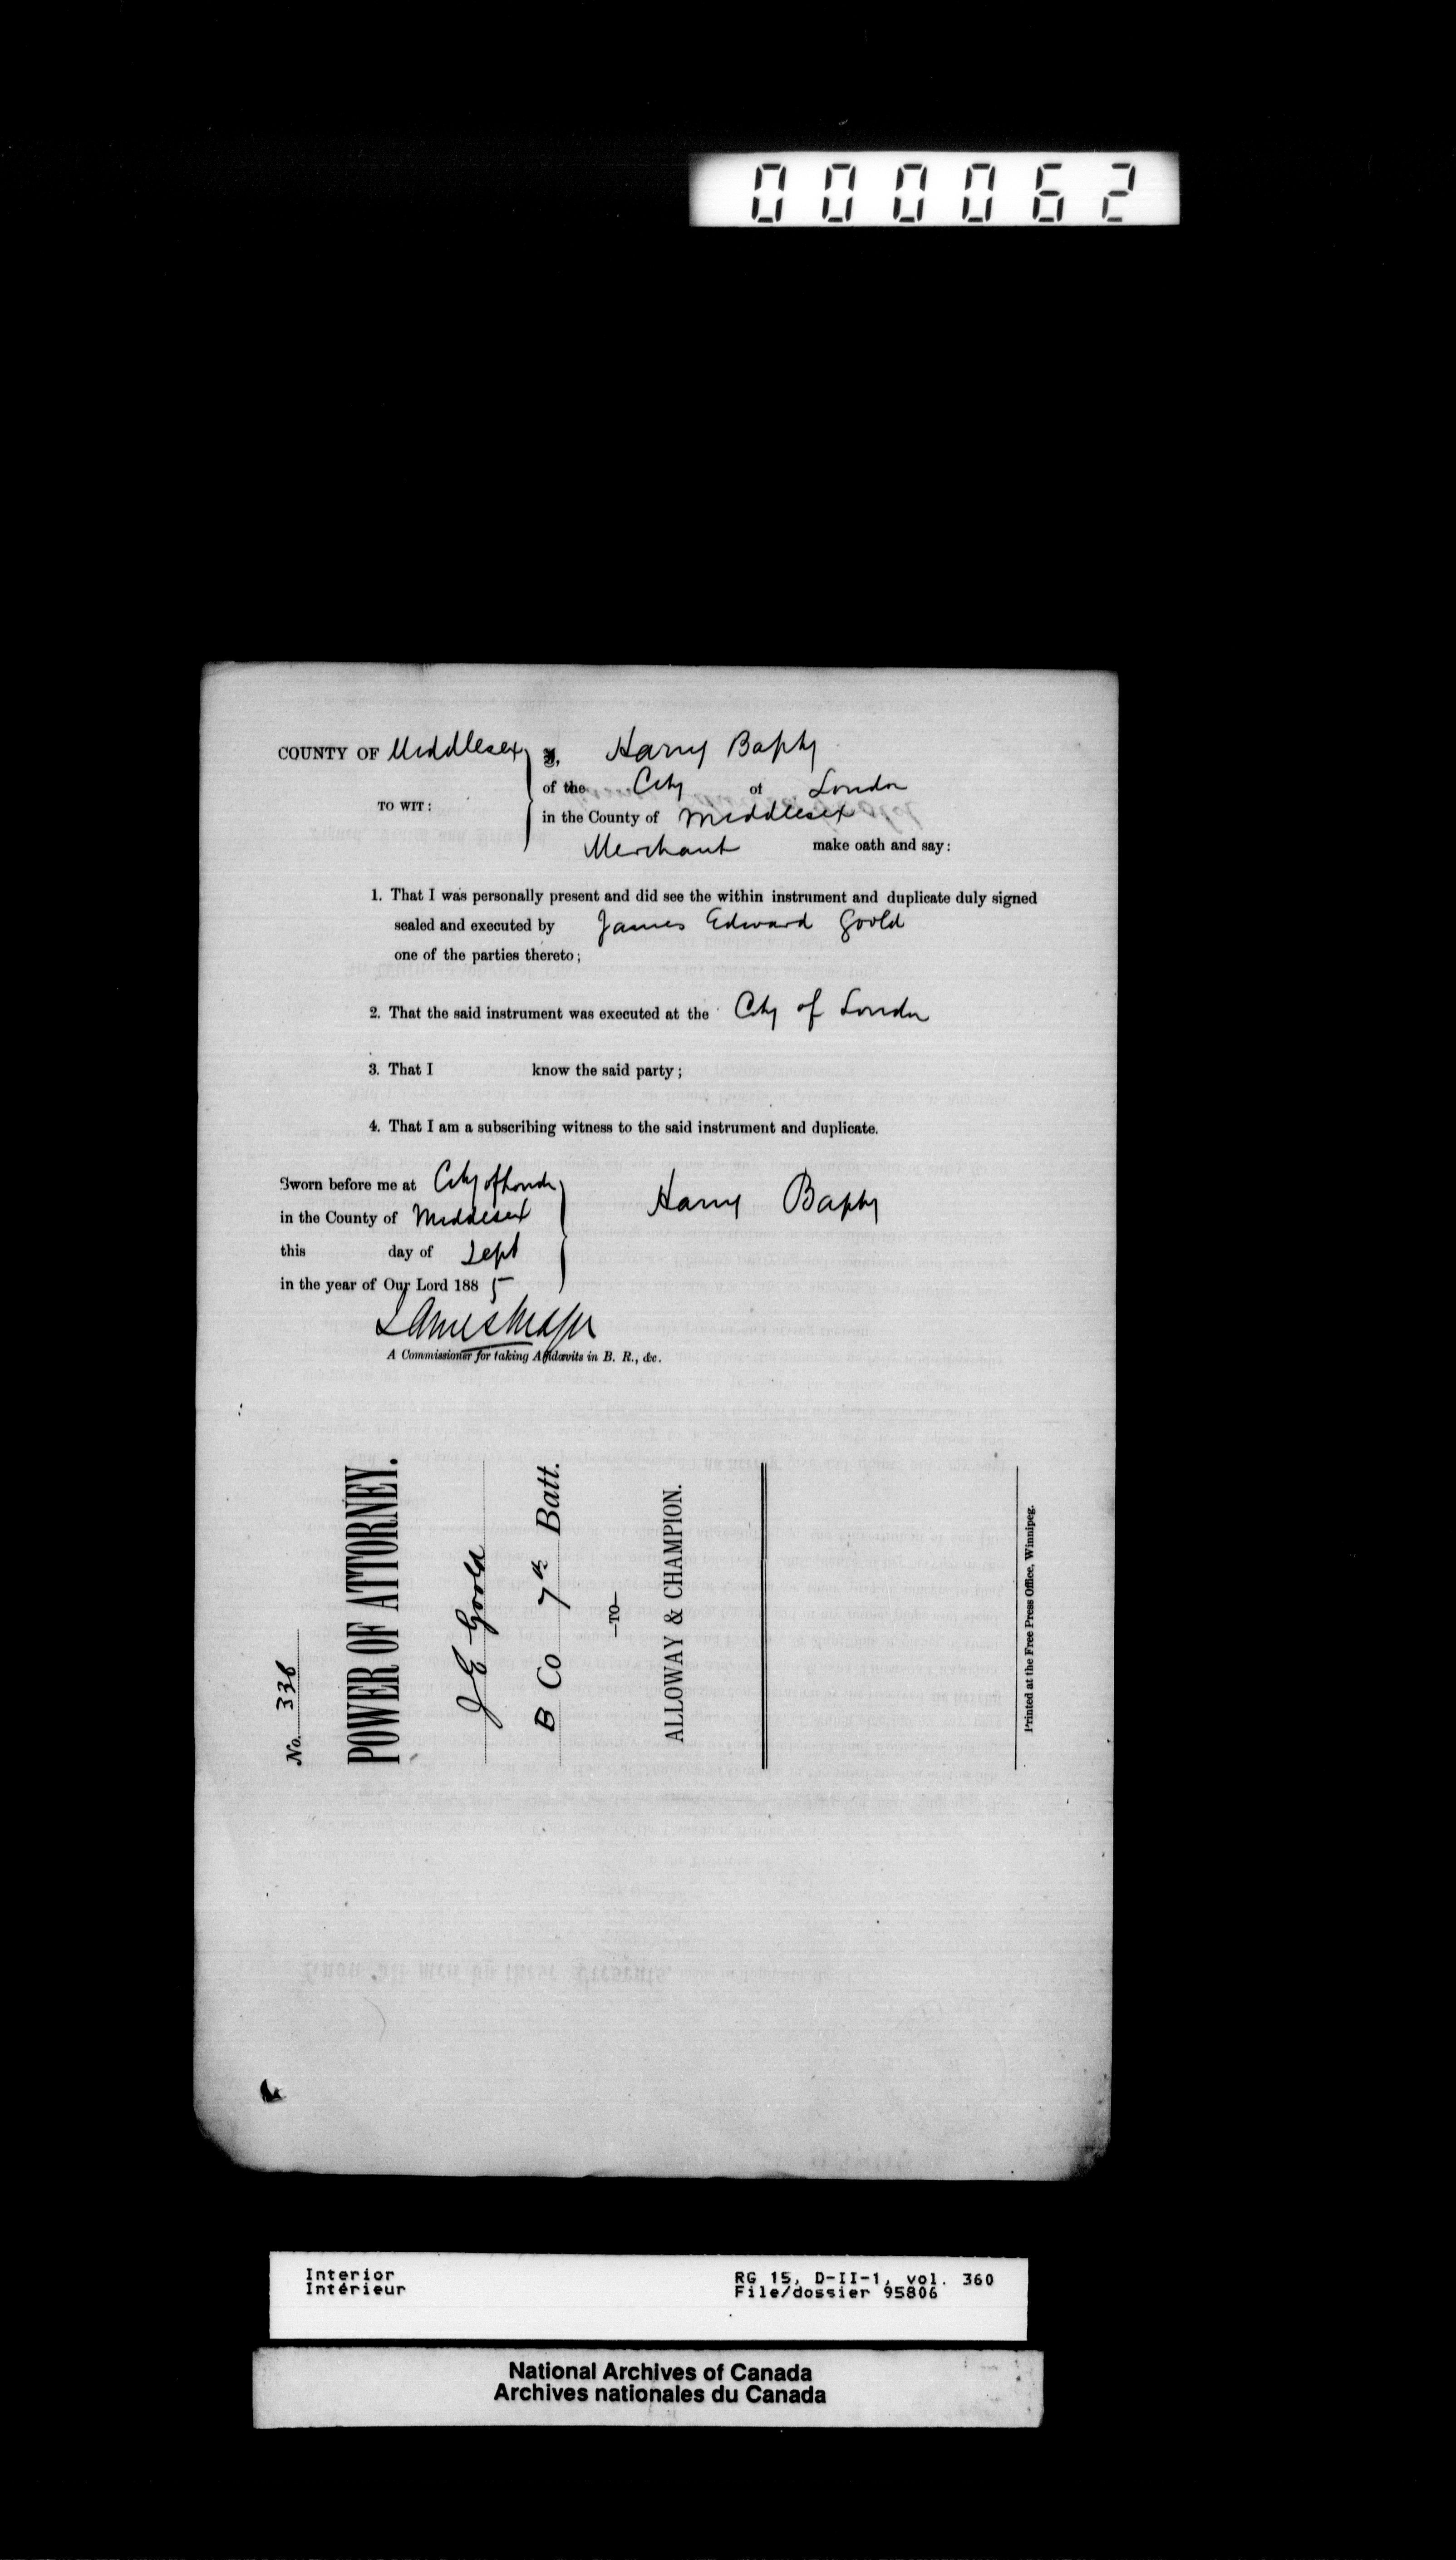 000062
COUNTY OF Middlesex
TO WIT:
I, Harry Bapty
of the City of London
in the County of Middlesex
Merchant make oath and say:
1. That I was personally present and did see the within instrument and duplicate duly signed
sealed and executed by James Edward Goold
one of the parties thereto;
2. That the said instrument was executed at the City of London
3. That I know the said party;
4. That I am a subscribing witness to the said instrument and duplicate.
Sworn before me at City of London
in the County of Middlesex
this day of Sept
in the year of Our Lord 1885
Harry Bapty
A Commissioner for taking Affidavits in B. R., &c.
No. 338
POWER OF ATTORNEY.
J E Goold
B Co 7th Batt.
—TO—
ALLOWAY & CHAMPION.
Printed at the Free Press Office, Winnipeg.
Interior
Intérieur
RG 15, D-II-1, vol. 360
File/dossier 95806
National Archives of Canada
Archives nationales du Canada